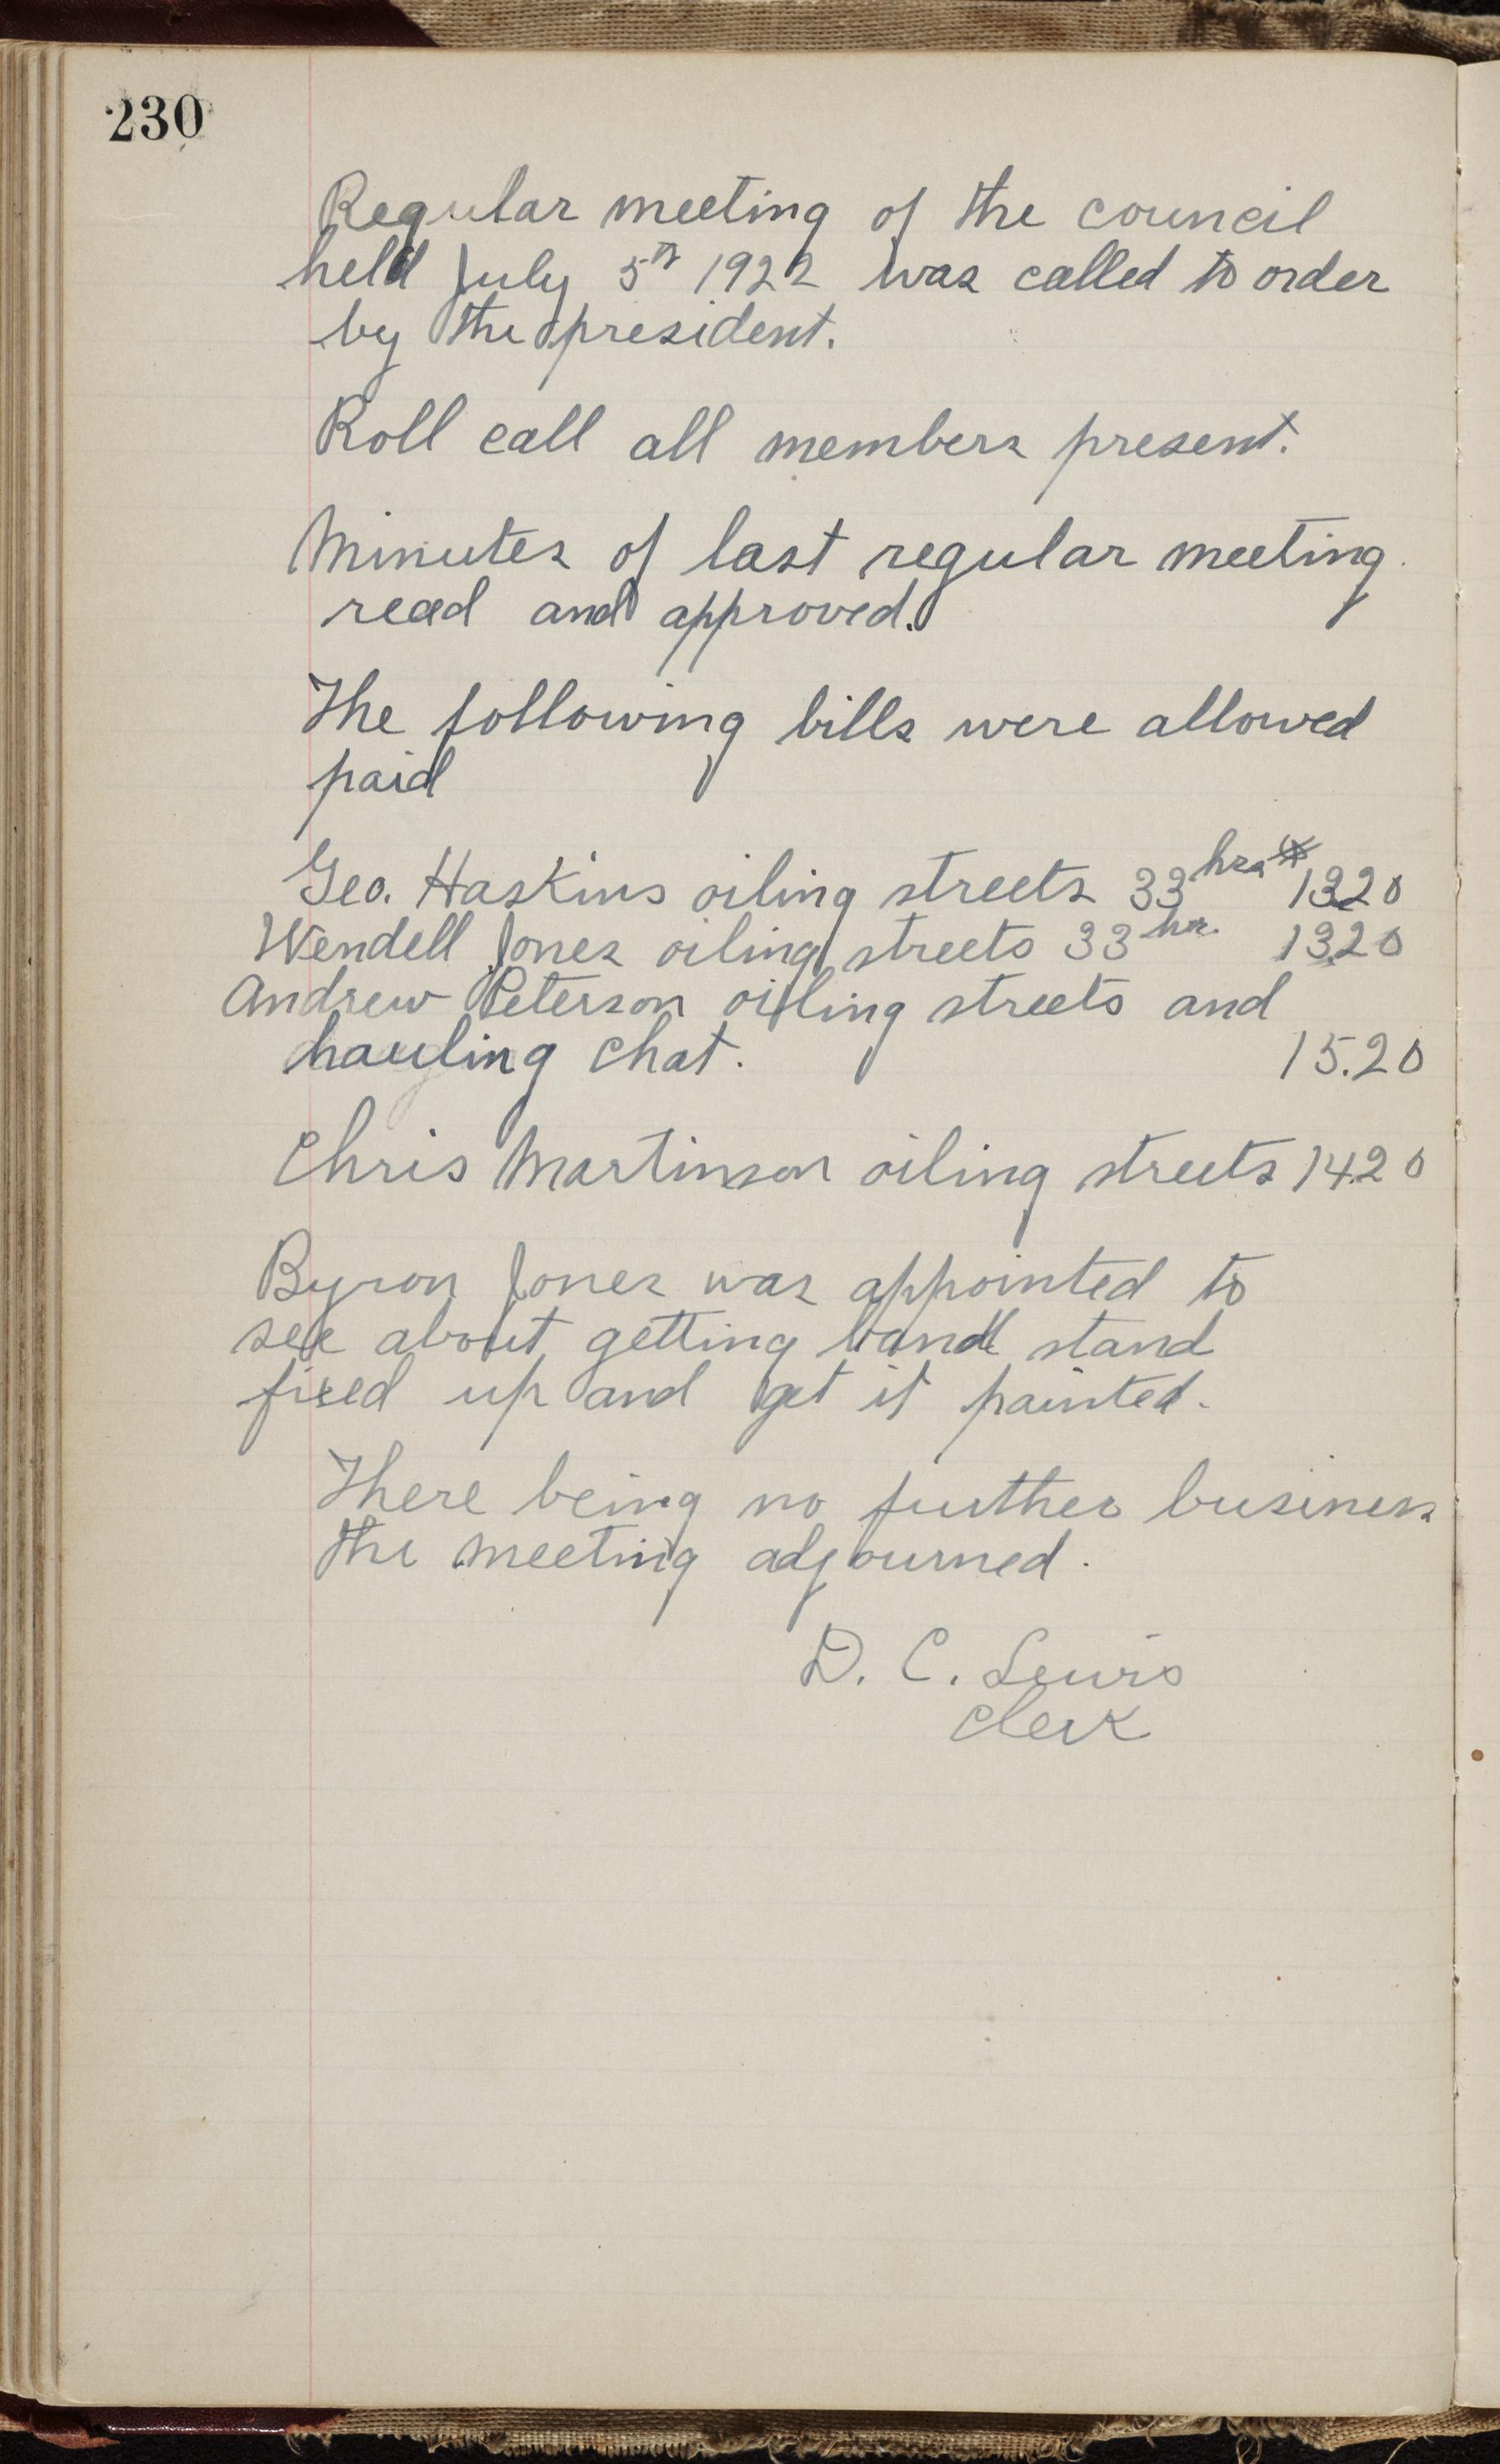 230
Regular meeting of the council
held July 5th 1922 was called to order
by the president.
Roll call all members present.
Minutes of last regular meeting
read and approved.
The following bills were allowed
paid
Geo. Haskins oiling streets 33 hrs $ 1320
Wendell Jones oiling streets 33 hr. 1320
Andrew Peterson oiling streets and
hauling chat. 15.20
Chris Martinson oiling streets 14.20
Byron Jones was appointed to
see about getting band stand
fixed up and get it painted.
There being no further business
the meeting adjourned.
D. C. Lewis
Clerk